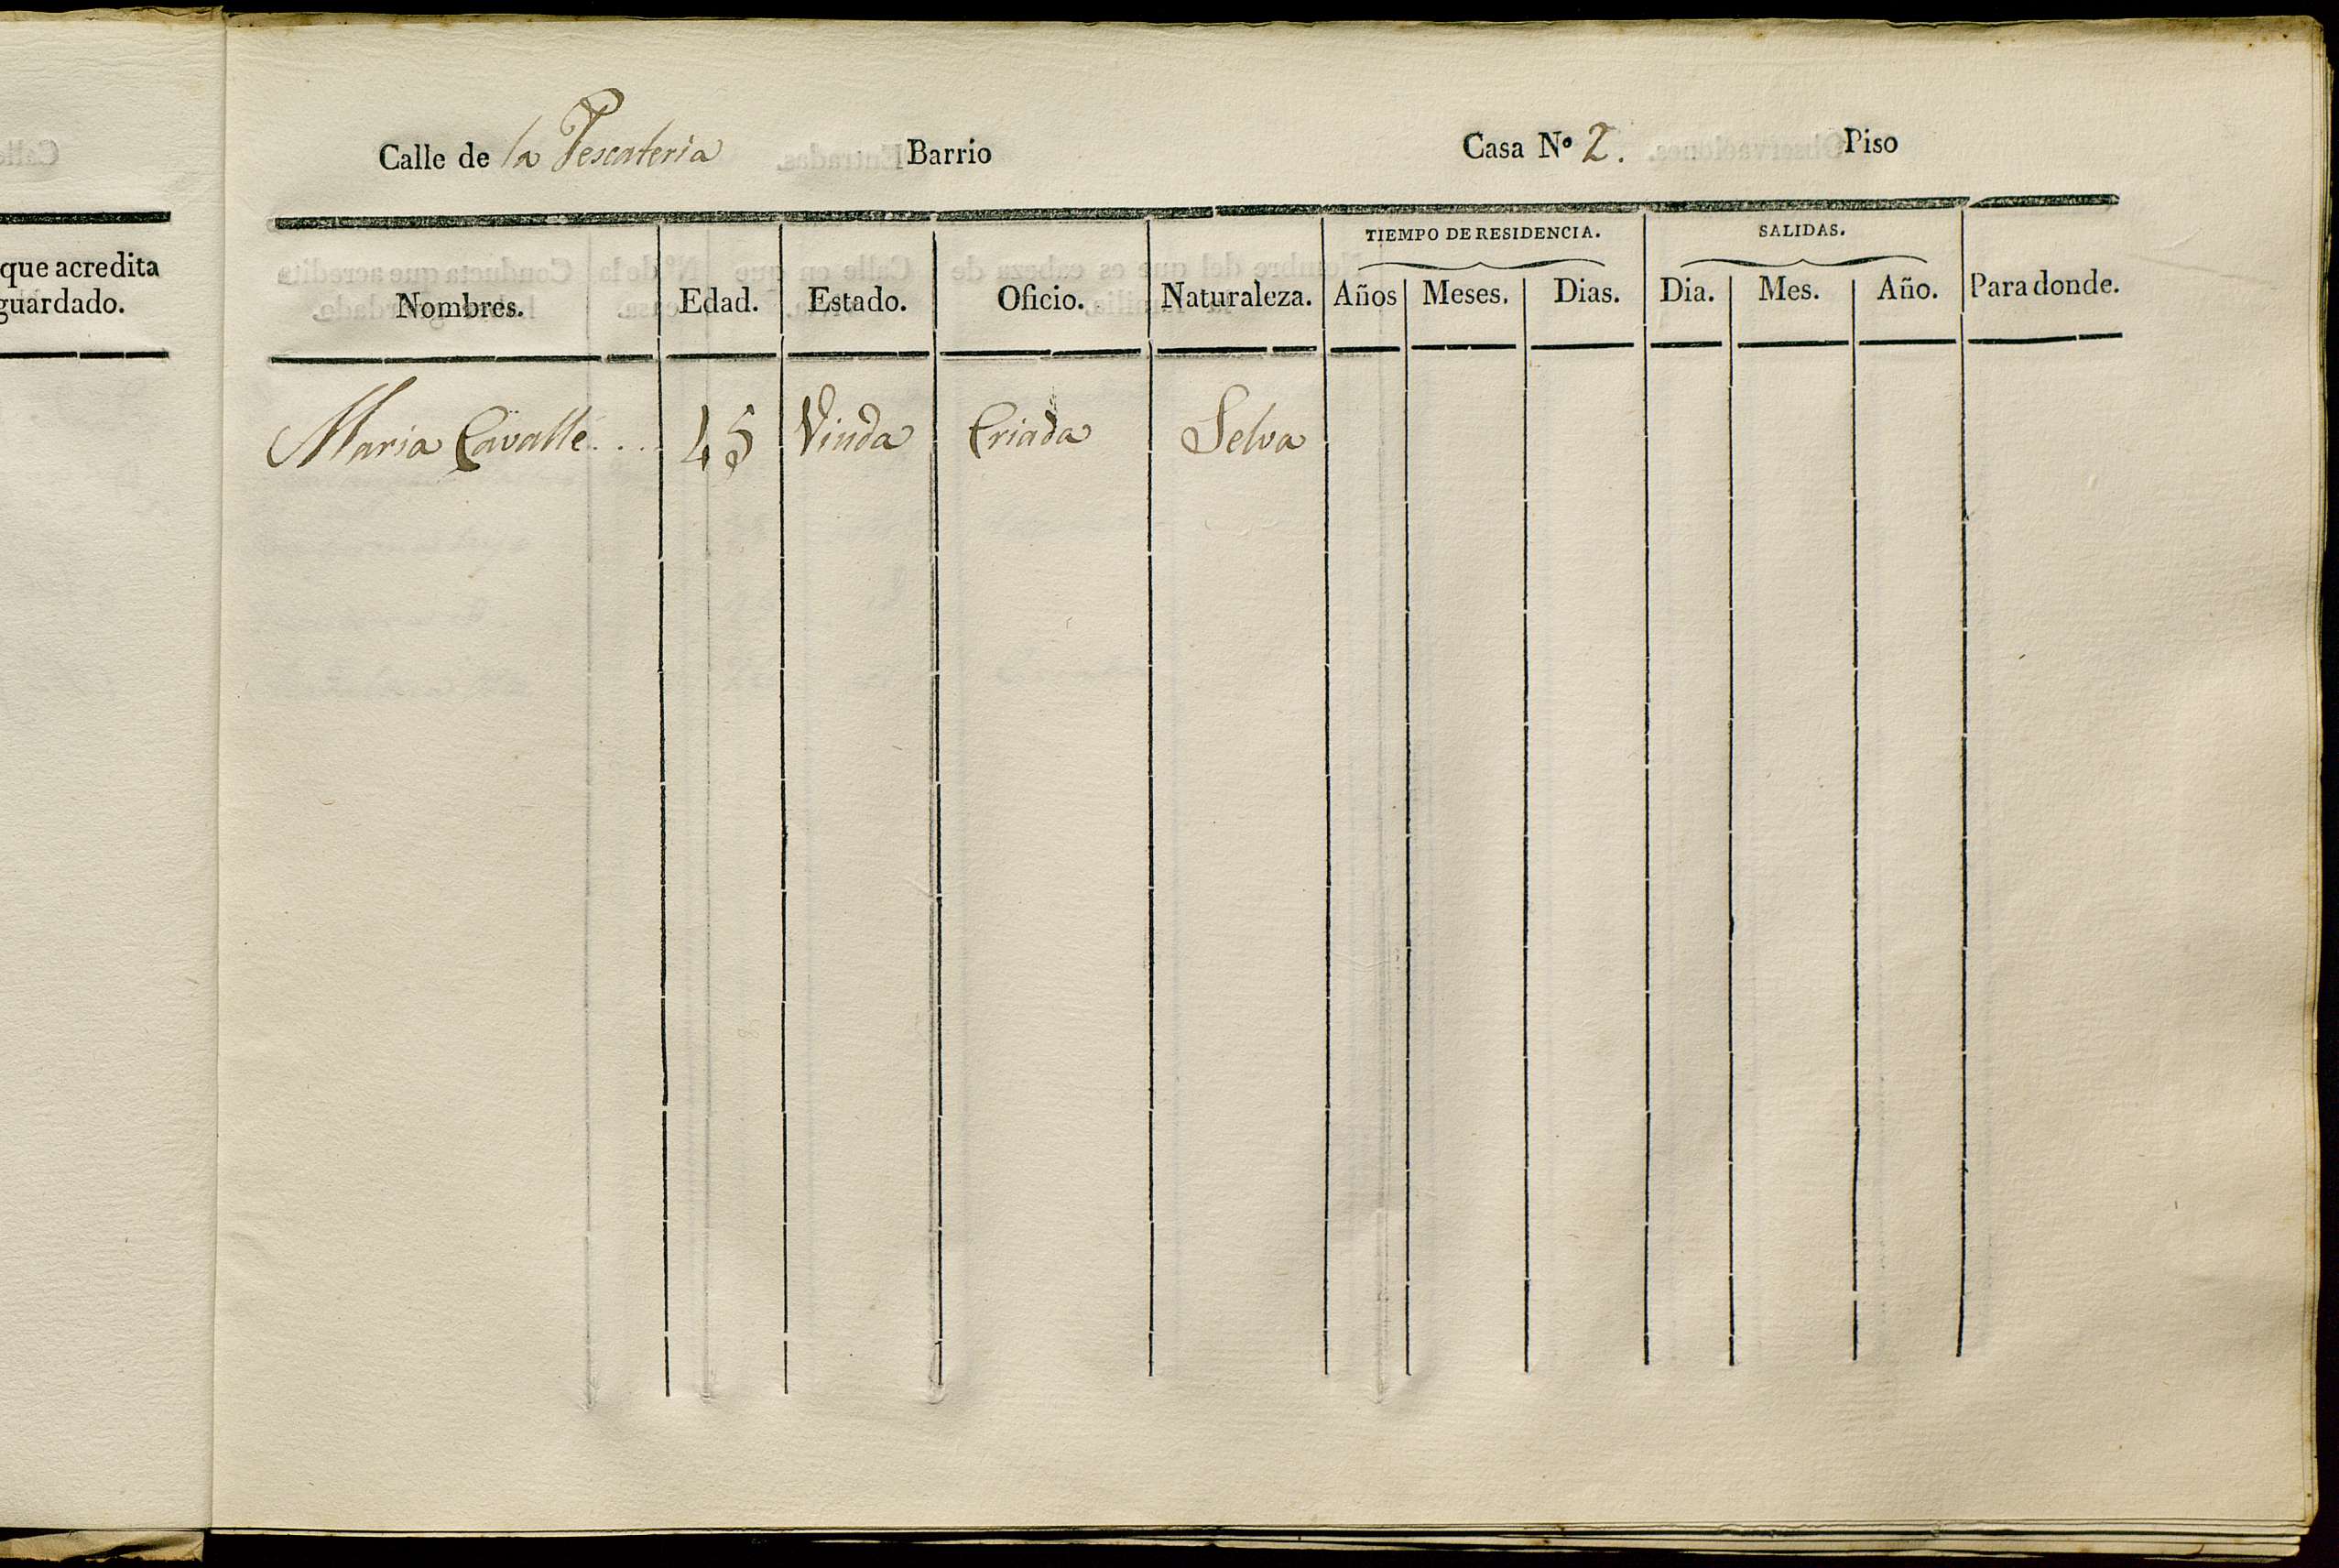 que acredita
guardado.
Calle de la Pescateria Barrio Casa Nº 2. Piso
TIEMPO DE RESIDENCIA. SALIDAS.
Nombres. Edad. Estado. Oficio. Naturaleza. Años Meses. Dias. Dia. Mes. Año. Para donde.
Maria Cavallé... 45 Viuda Criada Selva